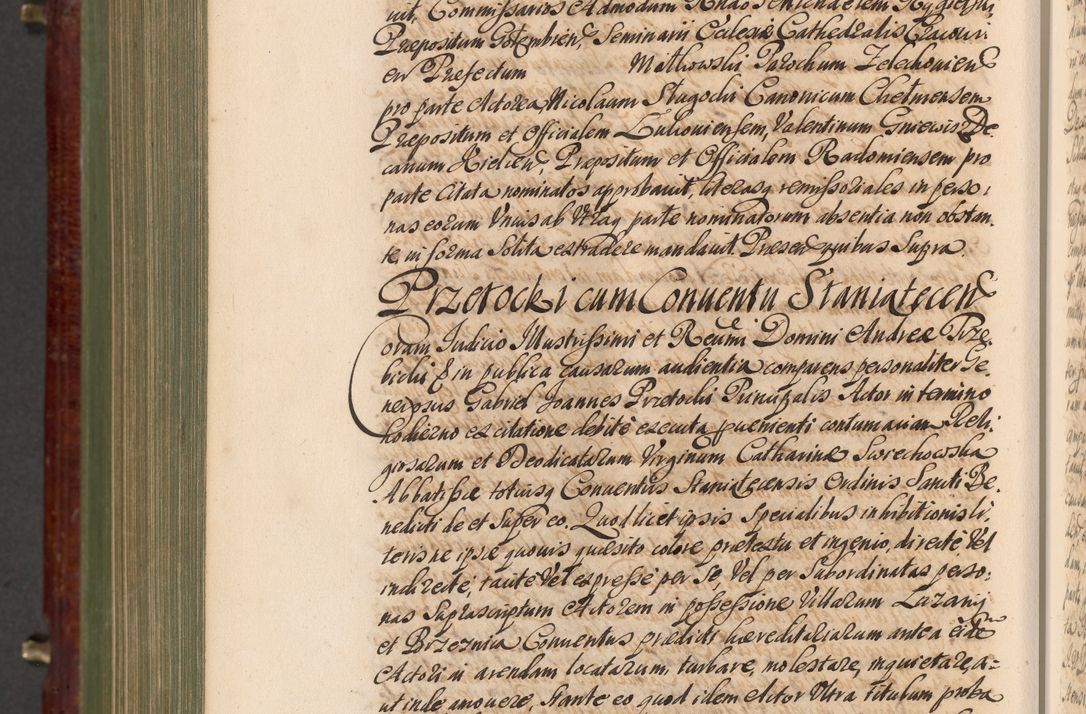 uit, Commissarios Admodum Rndos Michaelem
Præpositum Gołembien, Seminarii Eclesiæ Cathedralis Cracovi:
en Præfectum Malkowski Parochum Zelechovien
pro parte Actorea, Nicolaum Slugocki Canonicum Chelmensem
Præpositum et Officialem Lukoviensem, Valentinum Gniewisz De:
canum Kielcien, Præpositum et Officialem Radomiensem pro
parte Citata nominatos approbavit, literasq remissoriales in perso:
nas eorum Unius ab Utraq parte nominatorum absentia non obstan:
te, in forma Solita extradere mandavit. Præsen quibus Supra.
Przetocki cum Conventu Staniatecen
Coram Judicio Illustrissimi et Reverendissimi Domini Andreæ Trze:
bicki & in publica causarum audientia comparens personaliter Ge:
nerosus Gabriel Joannes Przetocki Actor in termino
hodierno ex citatione debite executa provenienti contumaciam Reli:
giosarum et Deodicatarum Virginum Catharinæ Swiechowska
Abbatissæ totiusq Conventus Staniatecensis Ordinis Sancti Be:
nedicti de et Super eo. Quod licet ipsis Specialibus inhibitionis li:
teris ne ipsæ quovis quæsito colore prætextu et ingenio, directe Vel
indirecte, tacite Vel expresse per Se, Vel per Subordinatas perso:
nas Suprascriptum Actorem in possessione Villarum Lazany
et Brzeznia Conventus prædicti hæreditariarum antea eidem
Actori in arendam locatarum, turbare, molestare, inquietare a:
ut inde amovere, stante eo quod idem Actor Ultra titulum proba